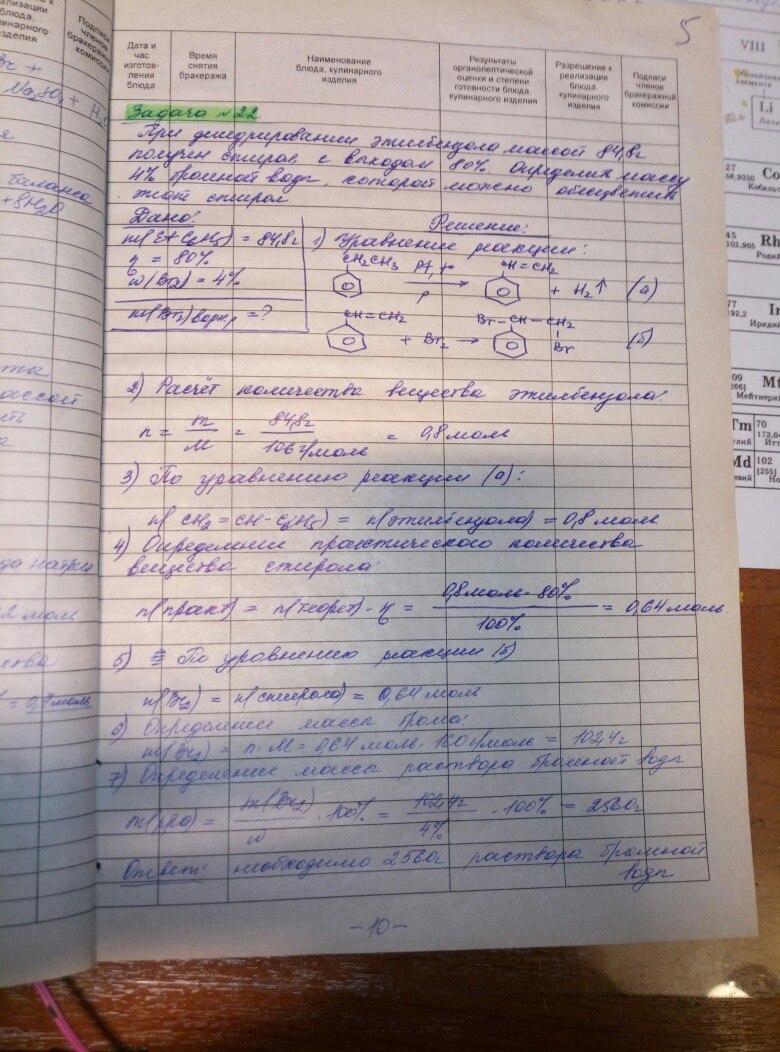 5
Дата и час изготов-ления блюда
Время снятия бракеража
Наименование блюда, кулинарного изделия
Результаты органолептической оценки и степени готовности блюда, кулинарного изделия
Разрешение к реализации блюда, кулинарного изделия
Подписи членов бракеражной комиссии
Задача №22
При дегидрировании этилбензола массой 84,8г
получен стирол с выходом 80%. Определить массу
4% бромной воды, которой можно обесцветить
этот стирол
Дано:
Решение:
m(Et C6H5) = 84,8г
η = 80%
ω(Br2) = 4%
m(Br2) водн.р = ?
1) Уравнение реакции:
CH2CH3 Pt, t° CH=CH2
P + H2↑ (а)
CH=CH2 Br-CH-CH2
+ Br2 → Br (б)
2) Расчёт количества вещества этилбензола:
n = m/M = 84,8г/106г/моль = 0,8 моль
3) По уравнению реакции (а):
n(CH2=CH-C6H5) = n(этилбензола) = 0,8 моль
4) Определение практического количества
вещества стирола:
n(практ) = n(теорет)·η = 0,8моль·80%/100% = 0,64 моль
5) По уравнению реакции (б)
n(Br2) = n(стирола) = 0,64 моль
6) Определение массы брома:
m(Br2) = n·M = 0,64 моль·160г/моль = 102,4г
7) Определение массы раствора бромной воды
m(р-ра) = m(Br2)/ω ·100% = 102,4г/4% ·100% = 2560г
Ответ: необходимо 2560г раствора бромной
воды
-10-
кулинарного
изделия
Подписи членов бракеражной комиссии
+ 8H2O
2 моль
VIII
Li
27
58,9330
Co
Кобальт
45
102,905
Rh
Родий
77
192,2
109
[266]
Mt
Мейтнерий
Tm
70
173,04
Md
102
[255]